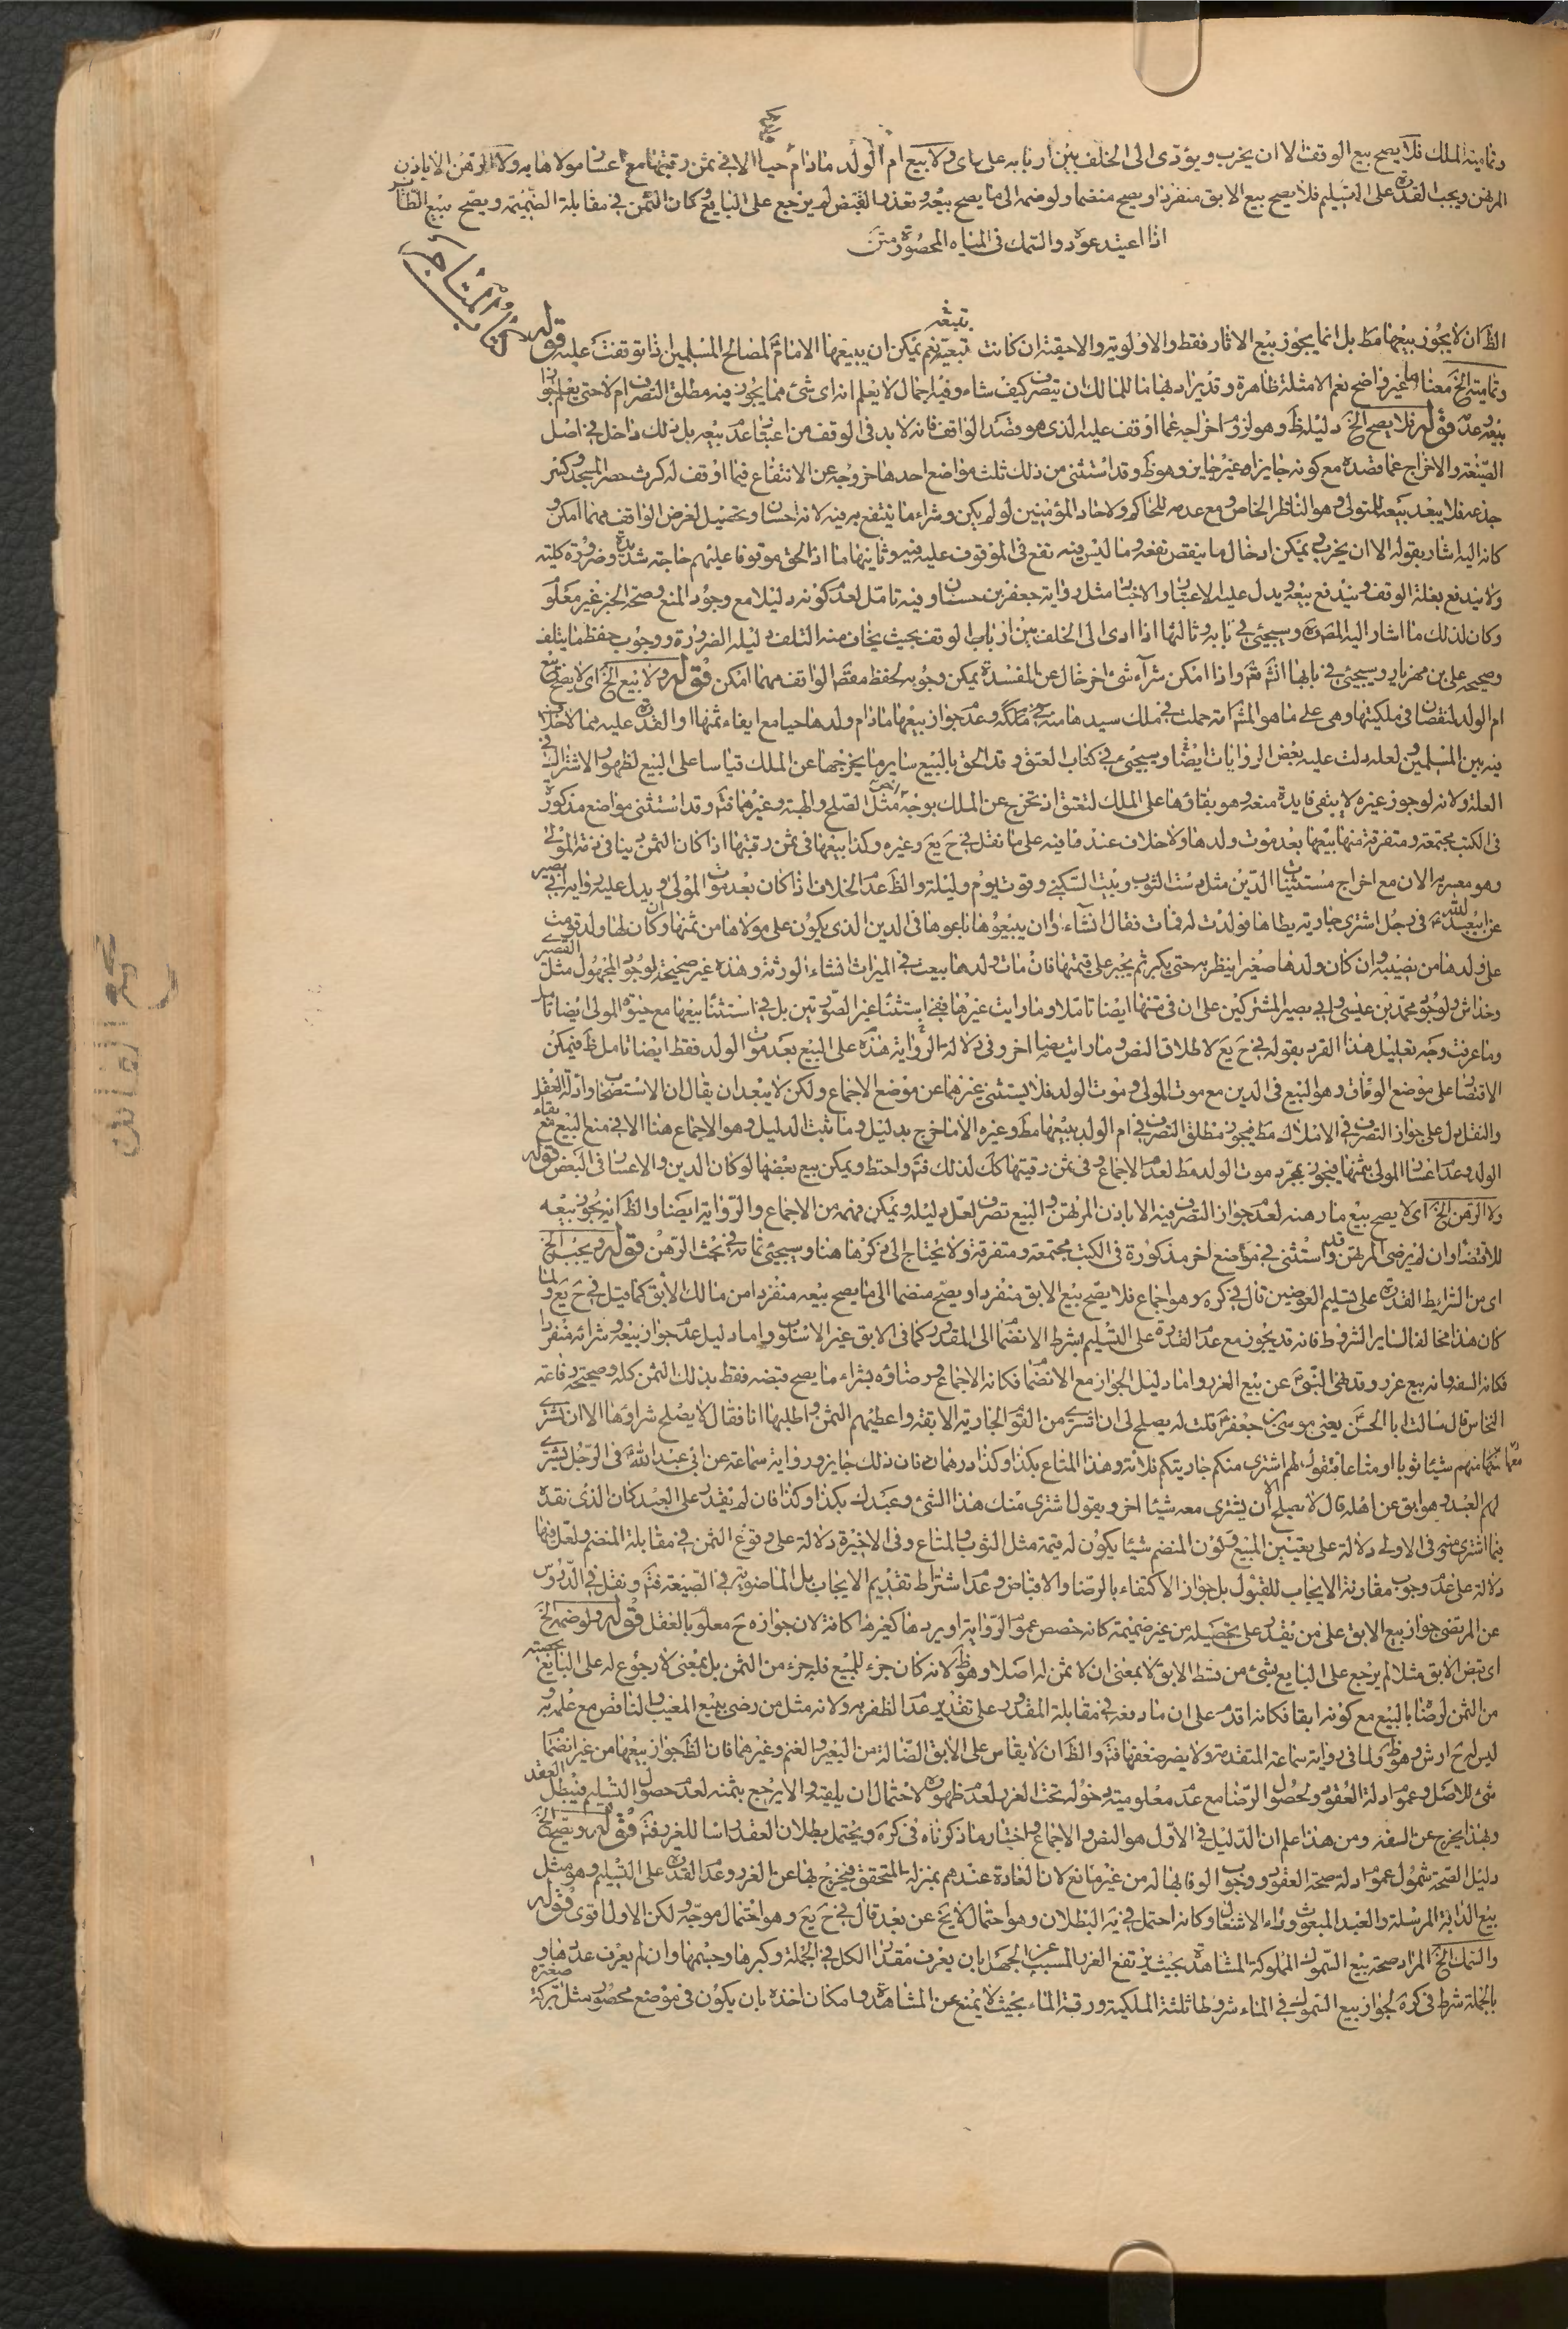 وتمامية الملك فلا يصح بيع الوقف الا ان يخرب ويؤدى الى الخلف بين اربابه على راى ولا بيع ام الولد مادام حيا الا فى ثمن رقبتها مع اعسار مولاها به ولا الرهن الا باذن
المرتهن ويجب القدرة على التسليم فلا يصح بيع الابق منفردا ويصح منضما ولو ضمه الى ما يصح بيعه وتعذر القبض لم يرجع على البايع وكان الثمن فى مقابلة الضميمة ويصح بيع الطاير
اذا اعتيد عوده والسمك فى المياه المحصورة متن
كتاب المتاجر
الظ ان لا يجوز بيعها مط بل انما يجوز بيع الاثار فقط والاولوية والاحقية ان كانت تبعية نعم يمكن ان يبيعها الامام لمصالح المسلمين اذا توقفت عليه قوله
وتمامية الخ معناها غير واضح نعم الامثلة ظاهرة وقد يراد بها ما للمالك ان يتصرف كيف شاء وفيه اجمال لا يعلم انه اى شئ مما يجوز فيه مطلق التصرف ام لا حتى يعلم جواز
بيعه وعدمه قوله فلا يصح الخ دليله ظ وهو لزوم اخراجه عما اوقف عليه الذى هو مقصد الواقف فانه لا بد فى الوقف من اعتبار عدم بيعه بل ذلك داخل فى اصل
الصيغة والاخراج عما قصده مع كونه جايزا غير جايز وهو ظ وقد استثنى من ذلك ثلث مواضع احدها خروجه عن الانتفاع فيما اوقف له كرث حصر المسجد وكسر
جذعه فلا يبعد بيعه للمتولى وهو الناظر الخاص ومع عدمه للحاكم ولاحاد المؤمنين لو لم يكن وشراء ما ينتفع به فيه لانه احسان وتحصيل لغرض الواقف مهما امكن و
كانه اليه اشار بقوله الا ان يخرب ويمكن ادخال ما ينقص نفعه وما ليس فيه نفع فى الموقوف عليه فيه وثانيها ما اذا لحق موقوفا عليهم حاجة شديدة وضرورة كلية
ولا يندفع بغلة الوقف ويندفع بيعه ويدل عليه الاعتبار والاخبار مثل رواية جعفر بن حسان وفيه تامل لعدم كونه دليلا مع وجود المنع وصحة الخبر غير معلوم
وكان لذلك ما اشار اليه المصره وسيجئ فى بابه وثالثها اذا ادى الى الخلف بين ارباب الوقف بحيث يخاف منه التلف ودليله الضرورة ووجوب حفظ ما يتلف
وصحيحه على بن مهزيار وسيجئ فى بابها انش تع واذا امكن شرآء شئ اخر خال عن المفسدة يمكن وجوبه لحفظ مقصد الواقف مهما امكن قوله ولا بيع الخ اى لا يصح بيع
ام الولد لنقصان فى ملكيتها وهى على ما هو المش امة حملت فى ملك سيدها منه فى ملكه وعدم جواز بيعها مادام ولدها حيا مع ايفاء ثمنها او القدرة عليه مما لا خلاف
فيه بين المسلمين ولعله دلت عليه بعض الروايات ايضا وسيجئ فى كتاب العتق وقد الحق بالبيع ساير ما يخرجها عن الملك قياسا على البيع لظهور الاشتراك فى
العلة ولانه لو جوز غيره لا يبقى فايدة منعه وهو بقاؤها على الملك لتعتق او تخرج عن الملك بوجه اخر مثل الصلح والهبة وغيرهما فتم وقد استثنى مواضع مذكورة
فى الكتب مجتمعة ومتفرقة منها بيعها بعد موت ولدها ولا خلاف عندنا فيه على ما نقل فى ح يع وغيره وكذا بيعها فى ثمن رقبتها اذا كان الثمن دينا فى ذمة المولى
وهو معسر به الان مع اخراج مستثنيات الدين مثل دست الثوب وبيت السكنى وقوت يوم وليلة والظ عدم الخلاف اذا كان بعد موت المولى ويدل عليه رواية ابى بصير
عن ابيعبد الله ع فى رجل اشترى جارية يطاها فولدت له فمات فقال ان شآء وان يبيعوها باعوها فى الدين الذى يكون على مولاها من ثمنها وان كان لها ولد قومت
على ولدها من نصيبه وان كان ولدها صغيرا ينظر به حتى يكبر ثم يجبر على قيمتها فان مات ولدها بيعت فى الميراث انشاء الورثة وهذه غير صحيحة لوجود المجهول مثل القصير
وخداش ولوجود محمد بن عيسى وابى بصير المشتركين على ان فى متنها ايضا تاملا وما رايت غيرها ففى استثناء غير الصورتين بل فى استثناء بيعها مع حيوة المولى ايضا تامل
وما عرفت وجه تعليل هذا الفرد بقوله فى ح يع لاطلاق النص وما رايت نصا اخر وفى دلالة الرواية هذه على البيع بعد موت الولد فقط ايضا تامل ظ فيمكن
الاقتصار على موضع الوفاق وهو البيع فى الدين مع موت المولى وموت الولد فلا يستثنى غيرهما عن موضع الاجماع ولكن لا يبعد ان يقال ان الاستصحاب وادلة العقل
والنقل دل على جواز التصرف فى الاملاك مط فيجوز مطلق التصرف فى ام الولد ببيعها مط وغيره الا ما خرج بدليل وما ثبت الدليل وهو الاجماع هنا الا فى منع البيع مع بقاء
الولد وعدم اعسار المولى بثمنها فيجوز بمجرد موت الولد مط لعدم الاجماع وفى ثمن رقبتها كك لذلك فتم واحتط ويمكن بيع بعضها لو كان الدين والاعسار فى البعض قوله
ولا الرهن الخ اى لا يصح بيع ما رهنه لعدم جواز التصرف فيه الا باذن المرتهن والبيع تصرف لعل دليله ويمكن فهمه من الاجماع والرواية ايضا والظ انه يجوز بيعه
للاقتضاء وان لم يرضى المرتهن وقد استثنى فى مواضع اخر مذكورة فى الكتب مجتمعة ومتفرقة ولا يحتاج الى ذكرها هنا وسيجئ ثمانه فى بحث الرهن قوله ويجب الخ
اى من الشرايط القدرة على تسليم العوضين قال فى كره وهو اجماع فلا يصح بيع الابق منفردا ويصح منضما الى ما يصح بيعه منفردا من مالك الابق كما قيل فى ح يع ولما
كان هذا مخالفا لساير الشروط فانه قد يجوز مع عدم القدرة على التسليم بشرط الانضمام الى المقدور كما فى الابق غير الاسلوب واما دليل عدم جواز بيعه وشرائه منفردا
فكانه السفه وانه بيع غرر وقد نهى النبى ص عن بيع الغرر واما دليل الجواز مع الانضمام فكانه الاجماع ورضاؤه بشراء ما يصح قبضه فقط بذلك الثمن كله وصحيحة رفاعة
النخاس قال سالت ابا الحسن يعنى موسى بن جعفر ع قلت له يصلح لى ان اشترى من القوم الجارية الابقة واعطيهم الثمن واطلبها انا فقال لا يصلح شراؤها الا ان تشترى
معها منهم شيئا ثوبا او متاعا فتقول لهم اشترى منكم جاريتكم فلانة وهذا المتاع بكذا وكذا درهما فان ذلك جايز ورواية سماعة عن ابى عبد الله ع فى الرجل يشترى
لهم العبد وهو ابق عن اهله قال لا يصلح الا ان يشترى معه شيئا اخر ويقول اشترى منك هذا الشئ وعبدك بكذا وكذا فان لم يقدر على العبد كان الذى نقده
فيما اشترى منه وفى الاولى دلالة على تعيين المبيع وكون المنضم شيئا يكون له قيمة مثل الثوب والمتاع وفى الاخيرة دلالة على وقوع الثمن فى مقابلة المنضم ولعل فيها
دلالة على عدم وجوب مقارنة الايجاب للقبول بل جواز الاكتفاء بالرضا والاقباض وعدم اشتراط تقديم الايجاب بل الماضوية فى الصيغة فتم ونقل فى الدروس
عن المرتضى جواز بيع الابق على من يقدر على تحصيله من غير ضميمة كانه خصص عموم الرواية او يردها كغيرها كانه لان جوازه ح معلوم بالعقل قوله ولو ضمه الخ
اى قبض الابق مثلا لم يرجع على البايع بشئ من قسط الابق لا بمعنى ان لا ثمن له اصلا وهو ظ لانه كان جزء للمبيع فله جزء من الثمن بل بمعنى لا رجوع له على البايع بحصته
من الثمن لرضا بالبيع مع كونه ابقا فكانه اقدم على ان ما دفعه فى مقابلة المقدور على تقدير عدم الظفر به ولانه مثل من رضى ببيع المعيب والناقص مع علمه به
ليس له ح ارش وهو ظ ولما فى رواية سماعة المتقدمة ولا يضر ضعفها فتم والظ ان لا يقاس على الابق الضالة من البعير والغنم وغيرهما فان الظ جواز بيعها من غير انضمام
شئ للاصل وعموم ادلة العقود ولحصول الرضا مع عدم معلومية دخوله تحت الغرر لعدم ظهوره لاحتمال ان يلقيه والا يرجع بثمنه لعدم حصول التسليم فيبطل العقد
وبهذا يخرج عن السفه ومن هذا علم ان الدليل فى الاول هو النص والاجماع واختار ما ذكرناه فى كره ويحتمل بطلان العقد راسا للغرر فتم قوله ويصح الخ
دليل الصحة شمول عموم ادلة صحة العقود ووجوب الوفا بها له من غير مانع لان العادة عندهم بمنزلة المتحقق فيخرج بها عن الغرر وعدم القدرة على التسليم وهو مثل
بيع الدابة المرسلة والعبد المبعوث وراء الاشغال وكانه احتمل فى يه البطلان وهو احتمال لا يخ عن بعد قال فى ح يع وهو احتمال موجه ولكن الاول اقوى قوله
والسمك الخ المراد صحة بيع السموك المملوكة المشاهدة بحيث يرتفع الغرر المسبب عن الجهل بان يعرف مقدار الكل فى الجملة وكبرها وجسمها وان لم يعرف عددها و صغيره
بالجملة شرط فى كره لجواز بيع السموك فى الماء شروطا ثلثة الملكية ورقة الماء بحيث لا يمنع عن المشاهدة وامكان اخذه بان يكون فى موضع محصور مثل بركة